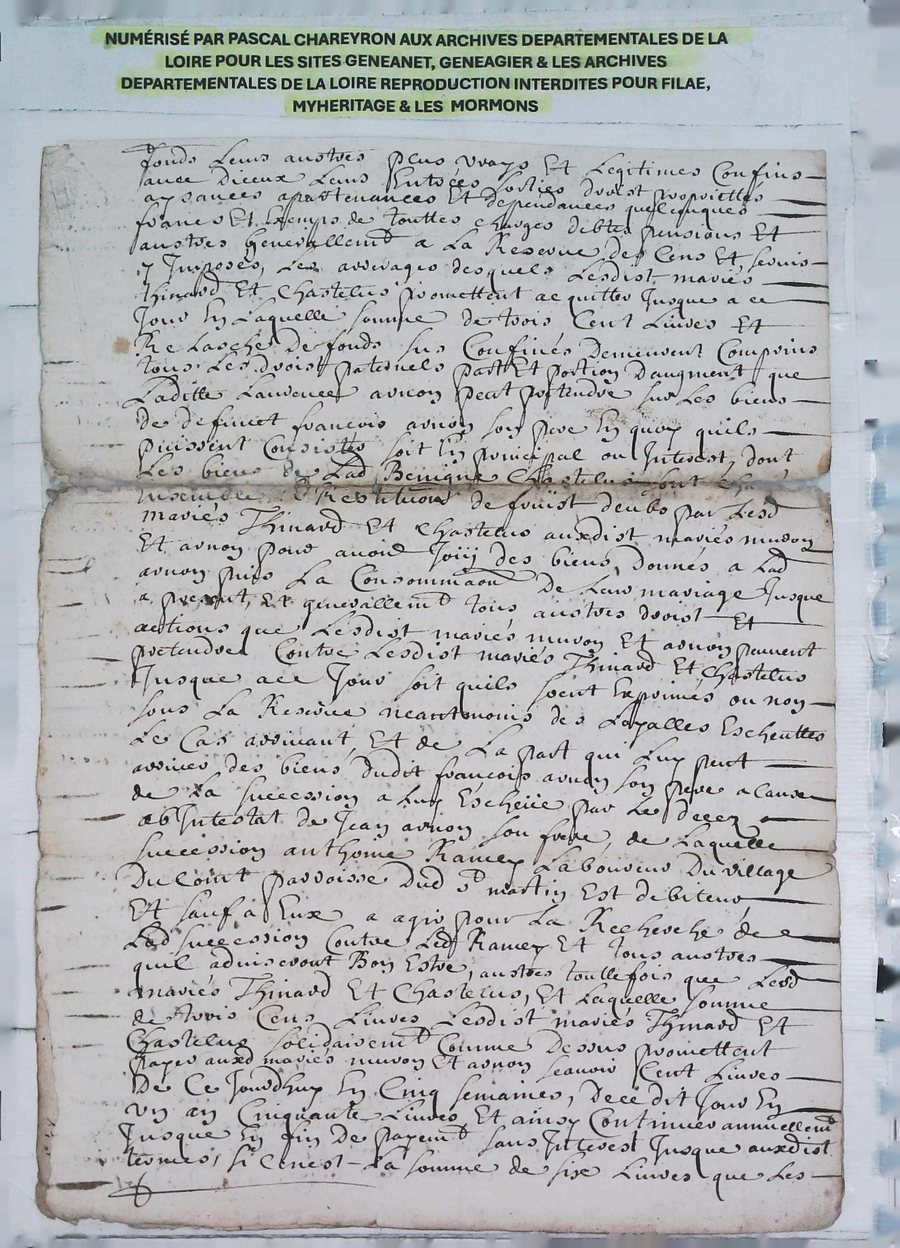 NUMÉRISÉ PAR PASCAL CHAREYRON AUX ARCHIVES DEPARTEMENTALES DE LA
LOIRE POUR LES SITES GENEANET, GENEAGIER & LES ARCHIVES
DEPARTEMENTALES DE LA LOIRE REPRODUCTION INTERDITES POUR FILAE,
MYHERITAGE & LES MORMONS
fonds Leurs austres plus vrays Et Legitimes Confins
avec Iceux Leurs Entrées sorties droist proprietés
aysances apartenances Et dependances quelconques
francs Et Exemps de touttes charges debtes pensions Et
austres Generallemt a La Reserve des Cens Et servis
y Imposés, Les arrerages desquels Lesdist mariés
Thinard Et Chastelus promettent acquitter Jusque a ce
Jour En Laquelle somme de trois Cent Livres Et
Relasché de fonds sus Confinés Demeurent Comprins
tous Les droist paternels part Et portion D'augment que
Laditte Laurence arnon peut pretendre sur Les biens
de deffunct francois arnon son pere En quoy quils
puissent Consister soit En principal ou Interest, dont
Les biens de Lad Benigne Chastelus sont
Ensemble Restitution de fruist deubs par Lesd
mariés Thinard Et Chastelus auxdist mariés muron
Et arnon pour avoir Jouy des biens donnés a Lad
arnon puis La Consommaon de Leur mariage Jusque
a present, Et generallemt tous austres droist Et
actions que Lesdist mariés muron Et arnon peuvent
pretendre Contre Lesdist mariés Thinard Et Chastelus
Jusque a ce Jour soit quils soient Exprimés ou non
sous La Reserve neantmoins des Loyalles Escheuttes
Le Cas arrivant, Et de La part qui Luy peut
arriver des biens dudit francois arnon son pere a Cause
de La succession a Luy Escheüe par Le decez
ab Intestat de Jean arnon son frere, de Laquelle
succession anthoine Ramey Laboureur Du village
Du Coint parroisse Dud st martin Est debiteur
Et sauf a Eux a agir pour La Recherche de
Lad succession Contre Led Ramey Et tous austres
quil adviseront Bon Estre, austres touttefois que Lesd
mariés Thinard Et Chastelus, Et Laquelle somme
de trois Cens Livres Lesdist mariés Thinard Et
Chastelus solidairemt Comme Dessus promettent
payer auxd mariés muron Et arnon scavoir Cent Livres
De Ce Jourdhuy En Cinq semaines, De ce dit Jour En
Un an Cinquante Livres Et ainsy Continuer annuellemt
Jusque En fin De payemt sans Interest Jusque auxdist
termes, si Cenest La somme de six Livres que Les